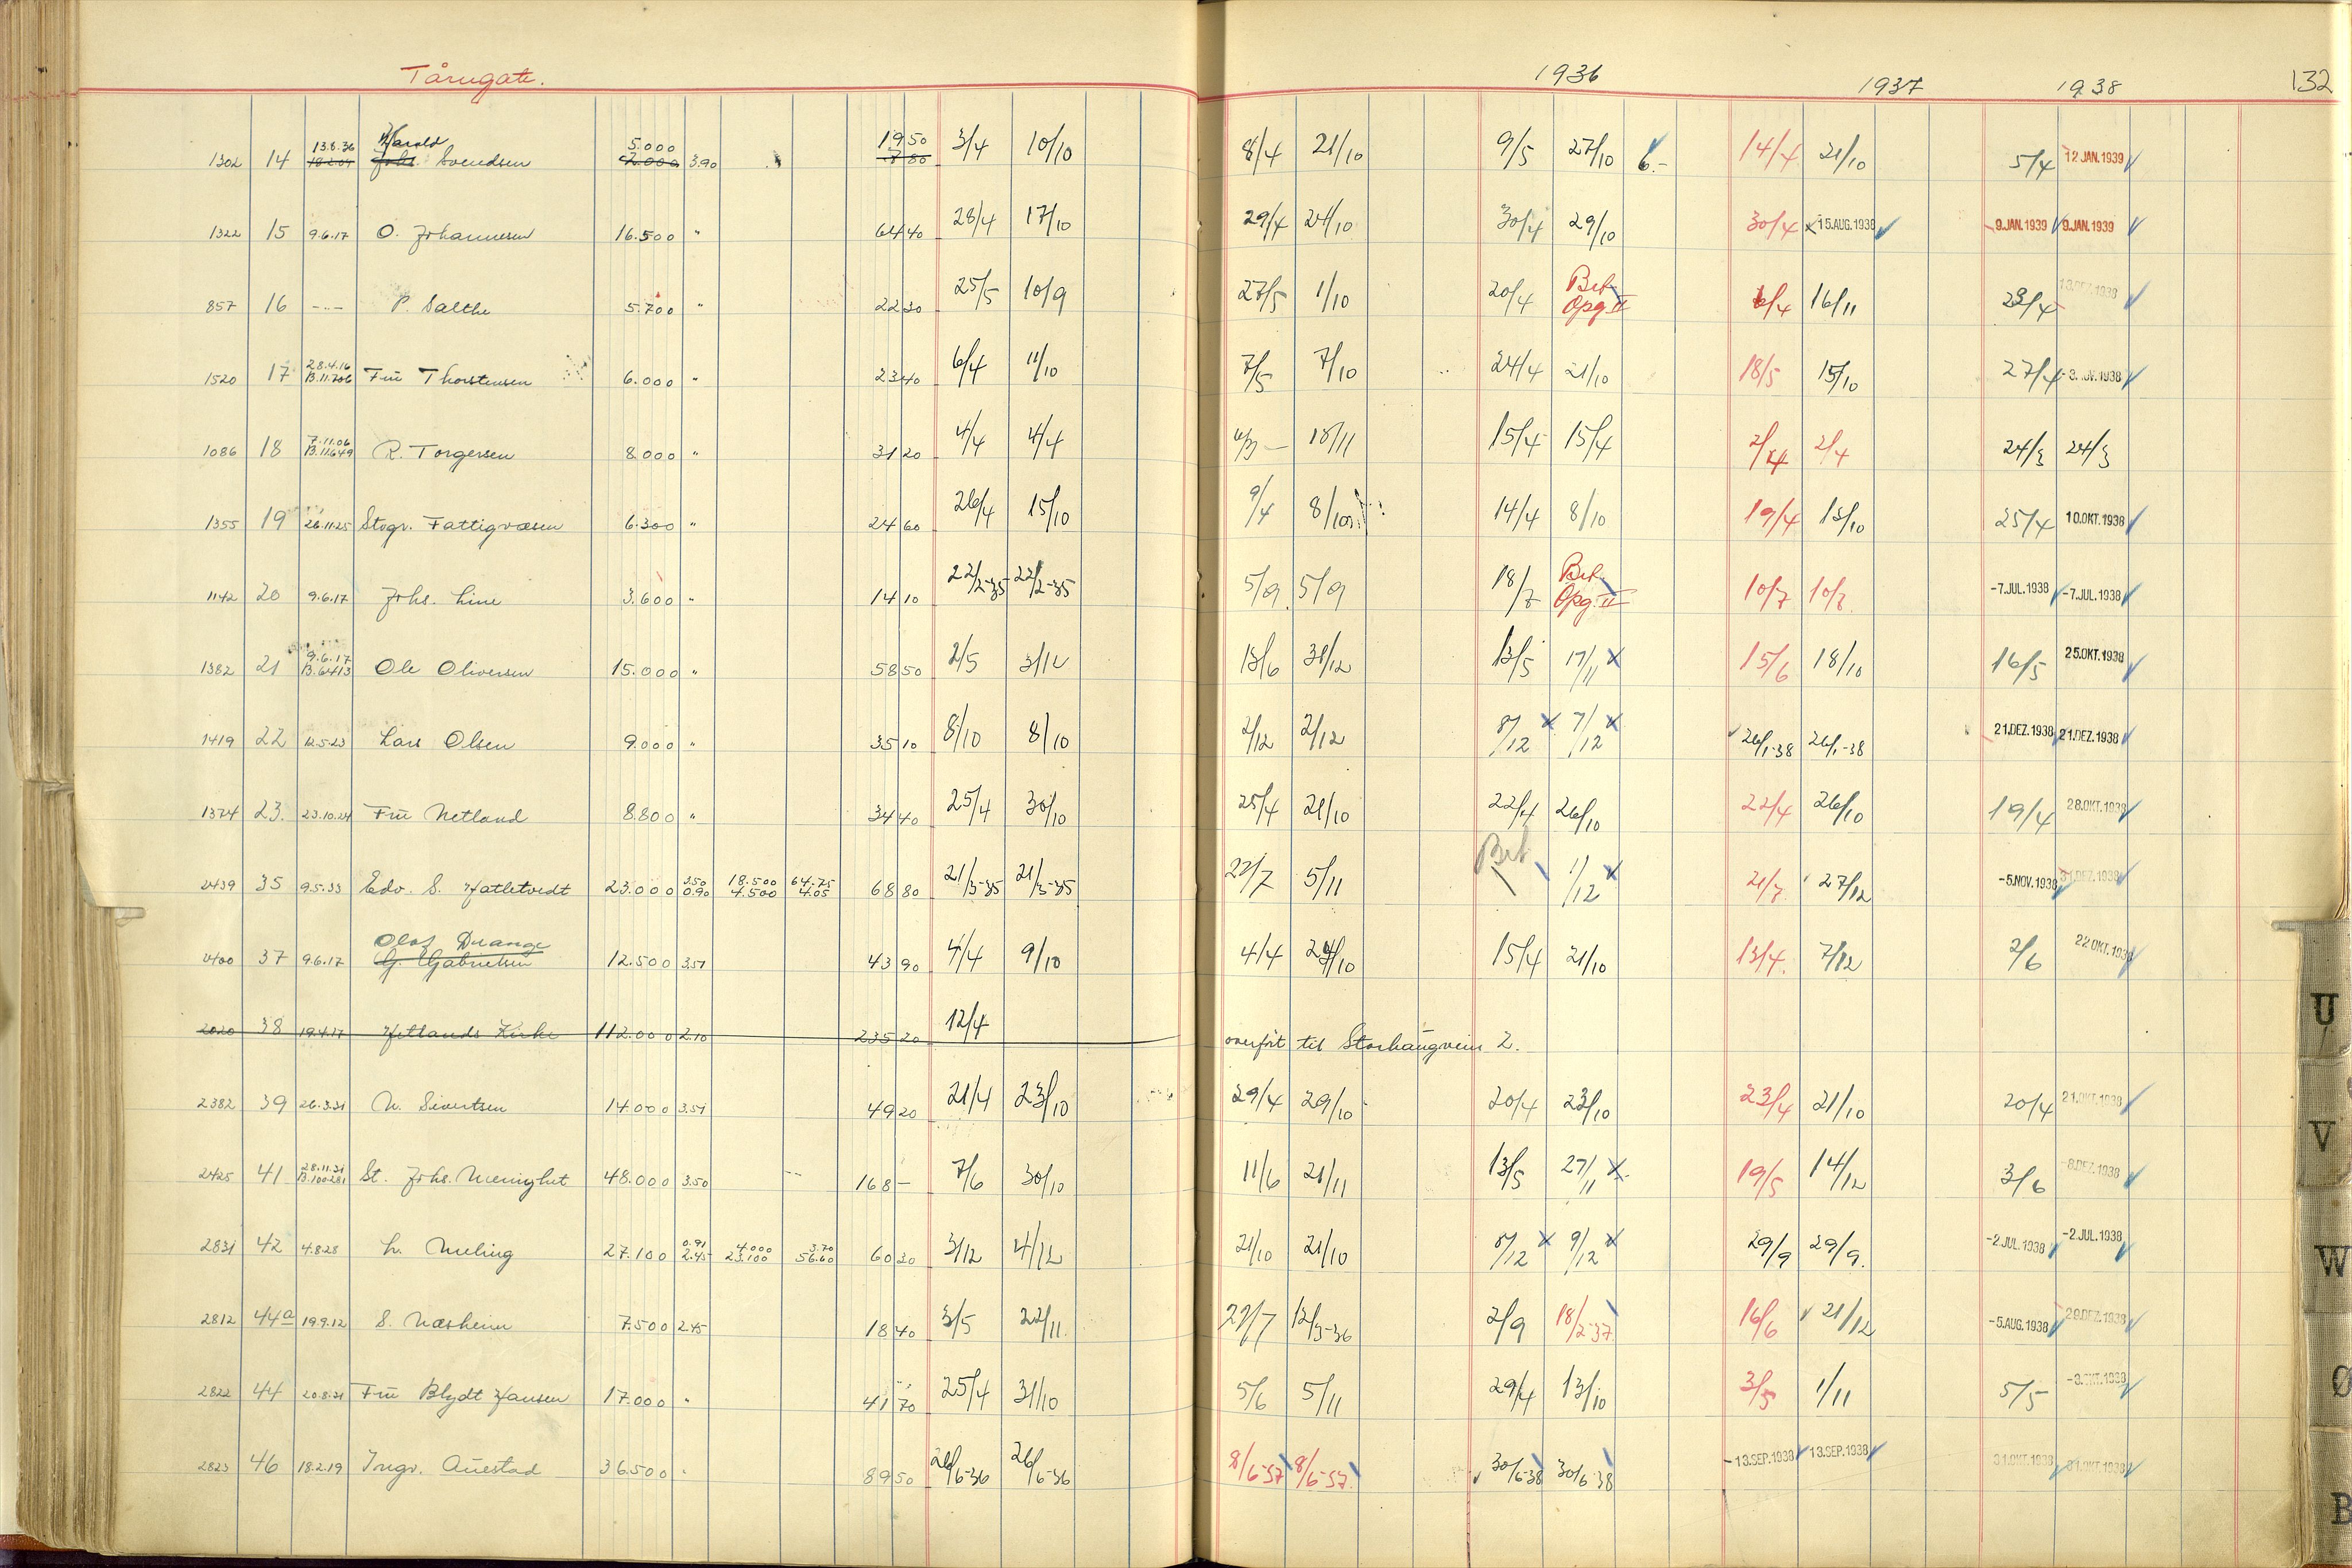 Tårngate.
1936 1937 1938 132
13.8.36 Harald 5.000 19 50
1302 14 18.2.07 Johs. Svendsen 2.000 3.90 7 80 3/4 10/10 8/4 21/10 9/5 27/10 6.- 14/4 21/10 5/4 12 JAN. 1939
1322 15 9.6.17 O. Johannesen 16.500 " 64 40 28/4 17/10 29/4 24/10 30/4 29/10 30/4 x 15. AUG. 1938 -9. JAN. 1939 9. JAN. 1939
857 16 -"- P. Salthe 5.700 " 22 30 25/5 10/9 27/5 1/10 20/4 Bet. Opg II 6/4 16/11 29/4 13. DEZ. 1938
28.4.16
1520 17 B.11.706 Frü Thorstensen 6.000 " 23 40 6/4 11/10 7/5 7/10 24/4 21/10 18/5 15/10 27/4
7.11.06
1086 18 B.11.649 R. Torgersen 8.000 " 31 20 4/4 4/4 18/11 15/4 15/4 2/4 2/4 24/3 24/3
1355 19 26.11.25 Stvgr. Fattigvæsen 6.300 " 24 60 26/4 15/10 9/4 8/10 14/4 8/10 19/4 13/10 25/4 10. OKT. 1938
1142 20 9.6.17 Johs. Line 3.600 " 14 10 22/2-35 22/2-35 5/9 5/9 18/7 Bet. Opg. II 10/7 10/7 -7. JUL. 1938 -7. JUL. 1938
9.6.17
1382 21 B.6413 Ole Oliversen 15.000 " 58 50 2/5 3/12 13/6 31/12 13/5 17/11 x 15/6 18/10 16/5 25. OKT. 1938
1419 22 12.5.23 Lars Olsen 9.000 " 35 10 8/10 8/10 2/12 2/12 8/12 x 7/12 x 26/1-38 26/1-38 21. DEZ. 1938 21. DEZ. 1938
1374 23. 23.10.24 Frü Netland 8.800 " 34 40 25/4 30/10 25/4 21/10 22/4 26/10 22/4 26/10 19/4 28. OKT. 1938
3.50 18.500 64.75 Bet
2439 35 9.5.33 Edv. S. Hatletvedt 23.000 0.90 4.500 4.05 68 80 21/3-35 21/3-35 22/7 5/11 1/12 x 21/7 27/12 -5. NOV. 1938 31. DEZ. 1938
Olaf Drange
2400 37 9.6.17 G. Gabrielsen 12.500 3.51 43 90 4/4 9/10 4/4 24/10 15/4 21/10 13/4. 7/12 2/6 22 OKT. 1938
2020 38 19.4.17 Hetlands Kirke 112.000 2.10 235 20 12/4 overført til Storhaugveien 2.
2382 39 26.3.31 N. Sivertsen 14.000 3.51 49 20 21/4 23/10 29/4 29/10 20/4 23/10 23/4 21/10 20/4 21. OKT. 1938
28.11.31
2425 41 B.100-281 St. Johs. Menighet 48.000 3.50 168 - 7/6 30/10 11/6 21/11 13/5 27/11 x 19/5 14/12 3/6 -8. DEZ. 1938
0.91 4.000 3.70
2831 42 4.8.28 L. Meling 27.100 2.45 23.100 56.60 60 30 3/12 4/12 21/10 21/10 8/12 x 9/12 x 29/9 29/9. -2. JUL. 1938 -2. JUL. 1938
2812 44a 19.9.12 S. Næsheim 7.500 2.45 18 40 3/5 22/11 22/7 12/3-36 2/9 18/2-37. 16/6 21/12 -5. AUG. 1938 29. DEZ. 1938
2822 44 20.8.31 Frü Blydt Hansen 17.000 " 41 70 25/4 31/10 5/6 5/11 29/4 13/10 3/5 1/11 5/5 -3. OKT. 1938
2823 46 18.2.19 Ingv. Auestad 36.500 " 89 50 26/6-36 26/6-36 8/6-37 8/6-37. 30/6-38 30/6-38 -13. SEP. 1938 13. SEP. 1938 31. OKT. 1938 31. OKT. 1938
U
V
W
Ø
B